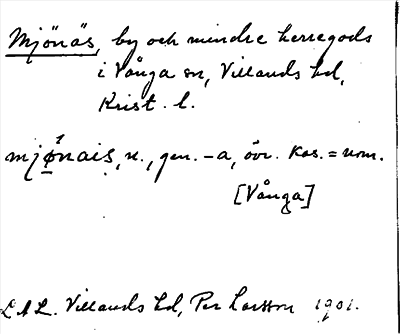 Mjönäs, by och mindre herregods
i Vånga sn, Villands hd,
Krist. l.
mjǿ̱nais, n., gen. -a, övr. kas. = nom.
[Vånga]
L.A.L. Villands hd, Per Larsson 1901.